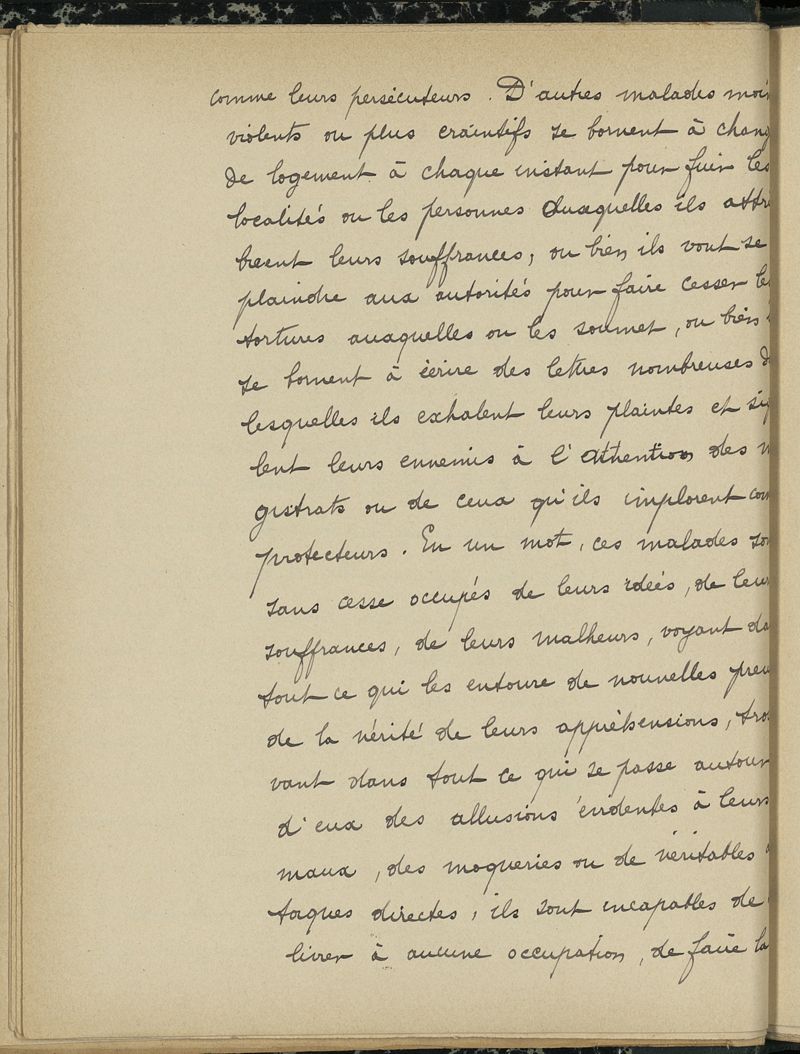 comme leurs persécuteurs. D'autres malades moi
violents ou plus craintifs se bornent à chang
de logement à chaque instant pour fuir les
localités ou les personnes auxquelles ils attri
buent leurs souffrances, ou bien ils vont se
plaindre aux autorités pour faire cesser le
tortures auxquelles on les soumet, ou bien
se bornent à écrire des lettres nombreuses d
lesquelles ils exhalent leurs plaintes et sig
lent leurs ennemis à l'attention des m
gistrats ou de ceux qu'ils implorent com
protecteurs. En un mot, ces malades son
sans cesse occupés de leurs idées, de leur
souffrances, de leurs malheurs, voyant da
tout ce qui les entoure de nouvelles preu
de la vérité de leurs appréhensions, trou
vant dans tout ce qui se passe autour
d'eux des allusions évidentes à leurs
maux, des moqueries ou de véritables a
taques directes, ils sont incapables de
livrer à aucune occupation, de faire la